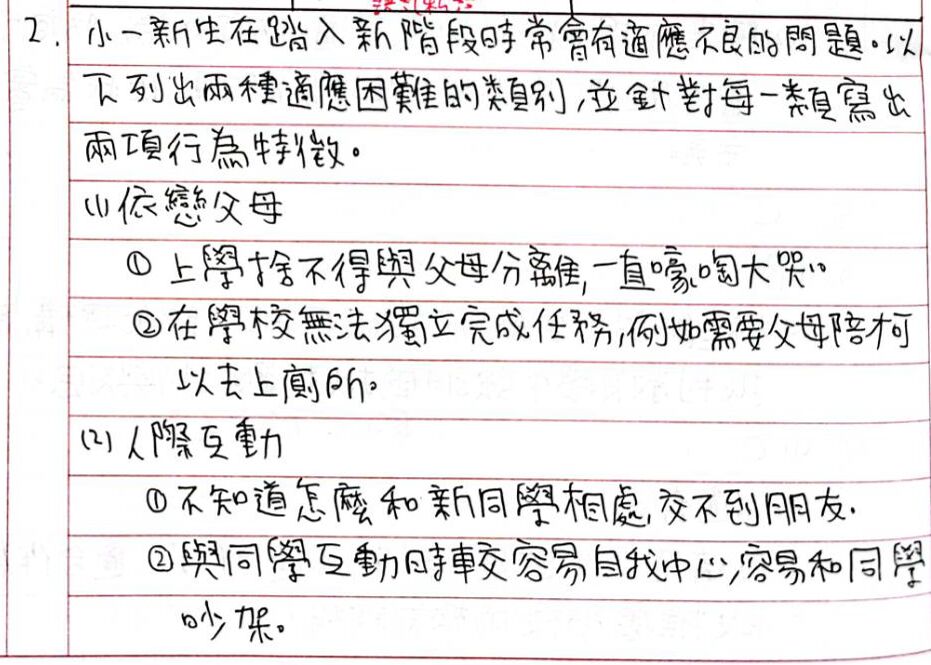 2. 小一新生在踏入新階段時常會有適應不良的問題。以
下列出兩種適應困難的類別,並針對每一類寫出
兩項行為特徵。
(1)依戀父母
① 上學捨不得與父母分離,一直嚎啕大哭。
②在學校無法獨立完成任務,例如需要父母陪才可
以去上廁所。
(2)人際互動
①不知道怎麼和新同學相處,交不到朋友.
②與同學互動時較容易自我中心,容易和同學
吵架。